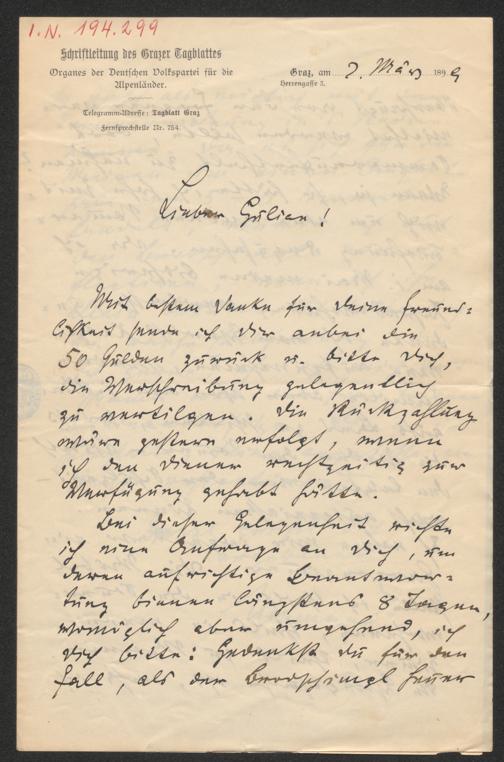 I.N. 194.299
Schriftleitung des Grazer Tagblattes
Organes der Deutschen Volkspartei für die
Alpenländer.
Telegramm-Adresse: Tagblatt Graz
Fernsprechstelle Nr. 784.
Graz, am 2. März 189
Herrengasse 3.
Lieber Gülian!
Mit bestem Danke für Deine freund-
lichkeit sende ich Dir anbei die
50 Gulden zurück u. bitte Dich,
die Verschreibung gelegentlich
zu vertilgen. Die Rückzahlung
wäre gestern erfolgt, wenn
ich den Diener rechtzeitig zur
Verfügung gehabt hätte.
Bei dieser Gelegenheit richte
ich eine Anfrage an Dich, um
deren aufrichtige Beantwor-
tung binnen längstens 8 Tagen,
womöglich aber umgehend, ich
Dich bitte: Gedenkst Du für den
Fall, als der Brodschimpl heuer